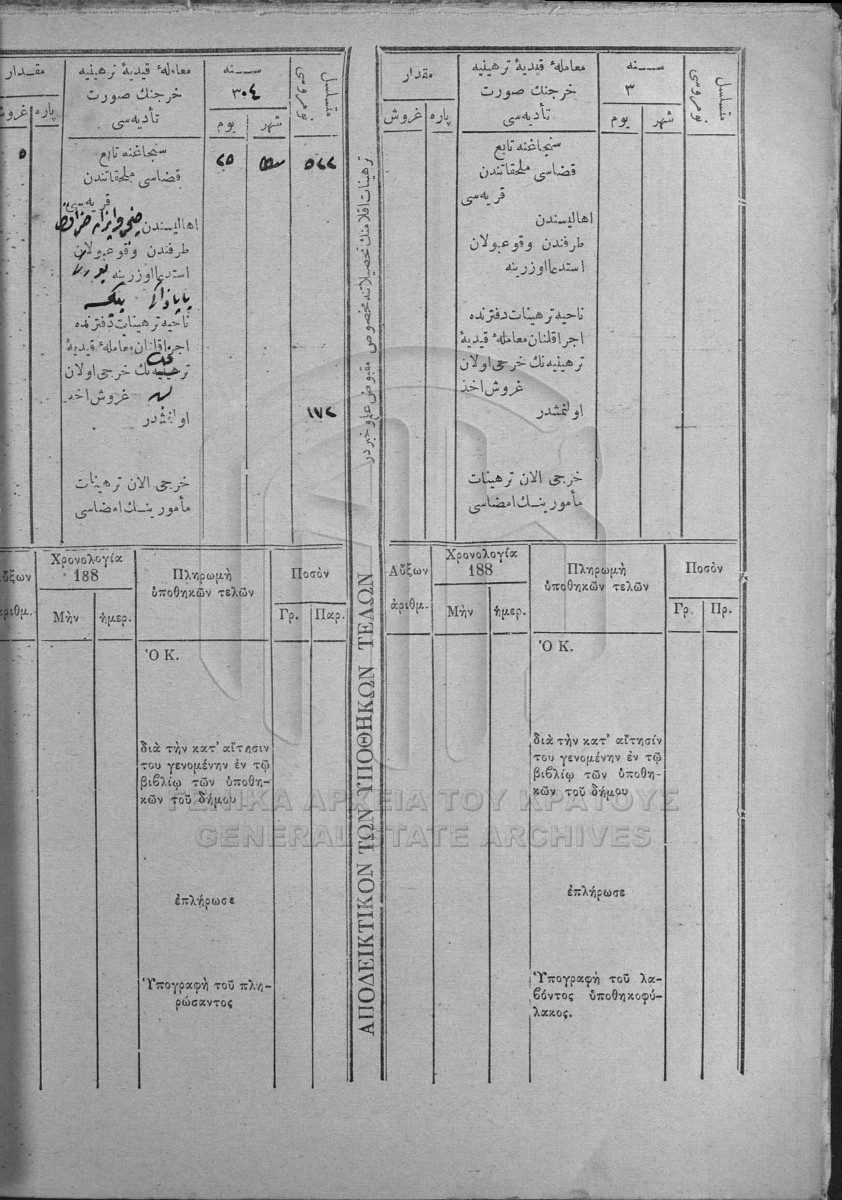 متسلسل نومروسی
سـنه
٣٠٤
شهر
یوم
معاملهٔ قیدیهٔ ترهینیه
خرجنك صورت
تأدیه‌سی
مقدار
پاره
غروش
٥٢٢
٢٥
٥
سنجاغنه تابع
قضاسی ملحقاتندن
قریه‌سی
اهالیسندن
طرفندن وقوعبولان
استدعا اوزرینه
ناحیه ترهینات دفترنده
اجرا قلنان معاملهٔ قیدیهٔ
ترهینیه‌نك خرجی اولان
غروش اخذ
اولنمشدر
١٧٢
خرجی الان ترهینات
مأمورینـك امضاسی
ترهینات اقلامنك تحصیلاتنه مخصوص مقبوض علم و خبردر
متسلسل نومروسی
سـنه
٣
شهر
یوم
معاملهٔ قیدیهٔ ترهینیه
خرجنك صورت
تأدیه‌سی
مقدار
پاره
غروش
سنجاغنه تابع
قضاسی ملحقاتندن
قریه‌سی
اهالیسندن
طرفندن وقوعبولان
استدعا اوزرینه
ناحیه ترهینات دفترنده
اجرا قلنان معاملهٔ قیدیهٔ
ترهینیه‌نك خرجی اولان
غروش اخذ
اولنمشدر
خرجی الان ترهینات
مأمورینـك امضاسی
Αὔξων
ἀριθμ.
Χρονολογία
188
Μὴν
ἡμερ.
Πληρωμὴ
ὑποθηκῶν τελῶν
Ποσὸν
Γρ.
Παρ.
Ὁ Κ.
διὰ τὴν κατ’ αἴτησιν
του γενομένην ἐν τῷ
βιβλίῳ τῶν ὑποθη-
κῶν τοῦ δήμου
ἐπλήρωσε
Ὑπογραφὴ τοῦ πλη-
ρώσαντος
ΑΠΟΔΕΙΚΤΙΚΟΝ ΤΩΝ ΥΠΟΘΗΚΩΝ ΤΕΛΩΝ
Αὔξων
ἀριθμ.
Χρονολογία
188
Μὴν
ἡμερ.
Πληρωμὴ
ὑποθηκῶν τελῶν
Ποσὸν
Γρ.
Πρ.
Ὁ Κ.
διὰ τὴν κατ’ αἴτησίν
του γενομένην ἐν τῷ
βιβλίῳ τῶν ὑποθη-
κῶν τοῦ δήμου
ἐπλήρωσε
Ὑπογραφὴ τοῦ λα-
βόντος ὑποθηκοφύ-
λακος.
ΓΕΝΙΚΑ ΑΡΧΕΙΑ ΤΟΥ ΚΡΑΤΟΥΣ
GENERAL STATE ARCHIVES